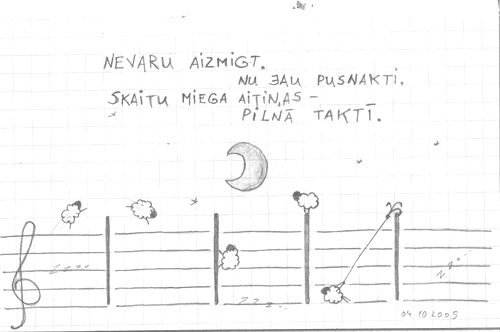 NEVARU AIZMIGT.
NU JAU PUSNAKTI.
SKAITU MIEGA AITIŅAS –
PILNĀ TAKTĪ.
zzzz
zzz...
zzz...
04.10.2005